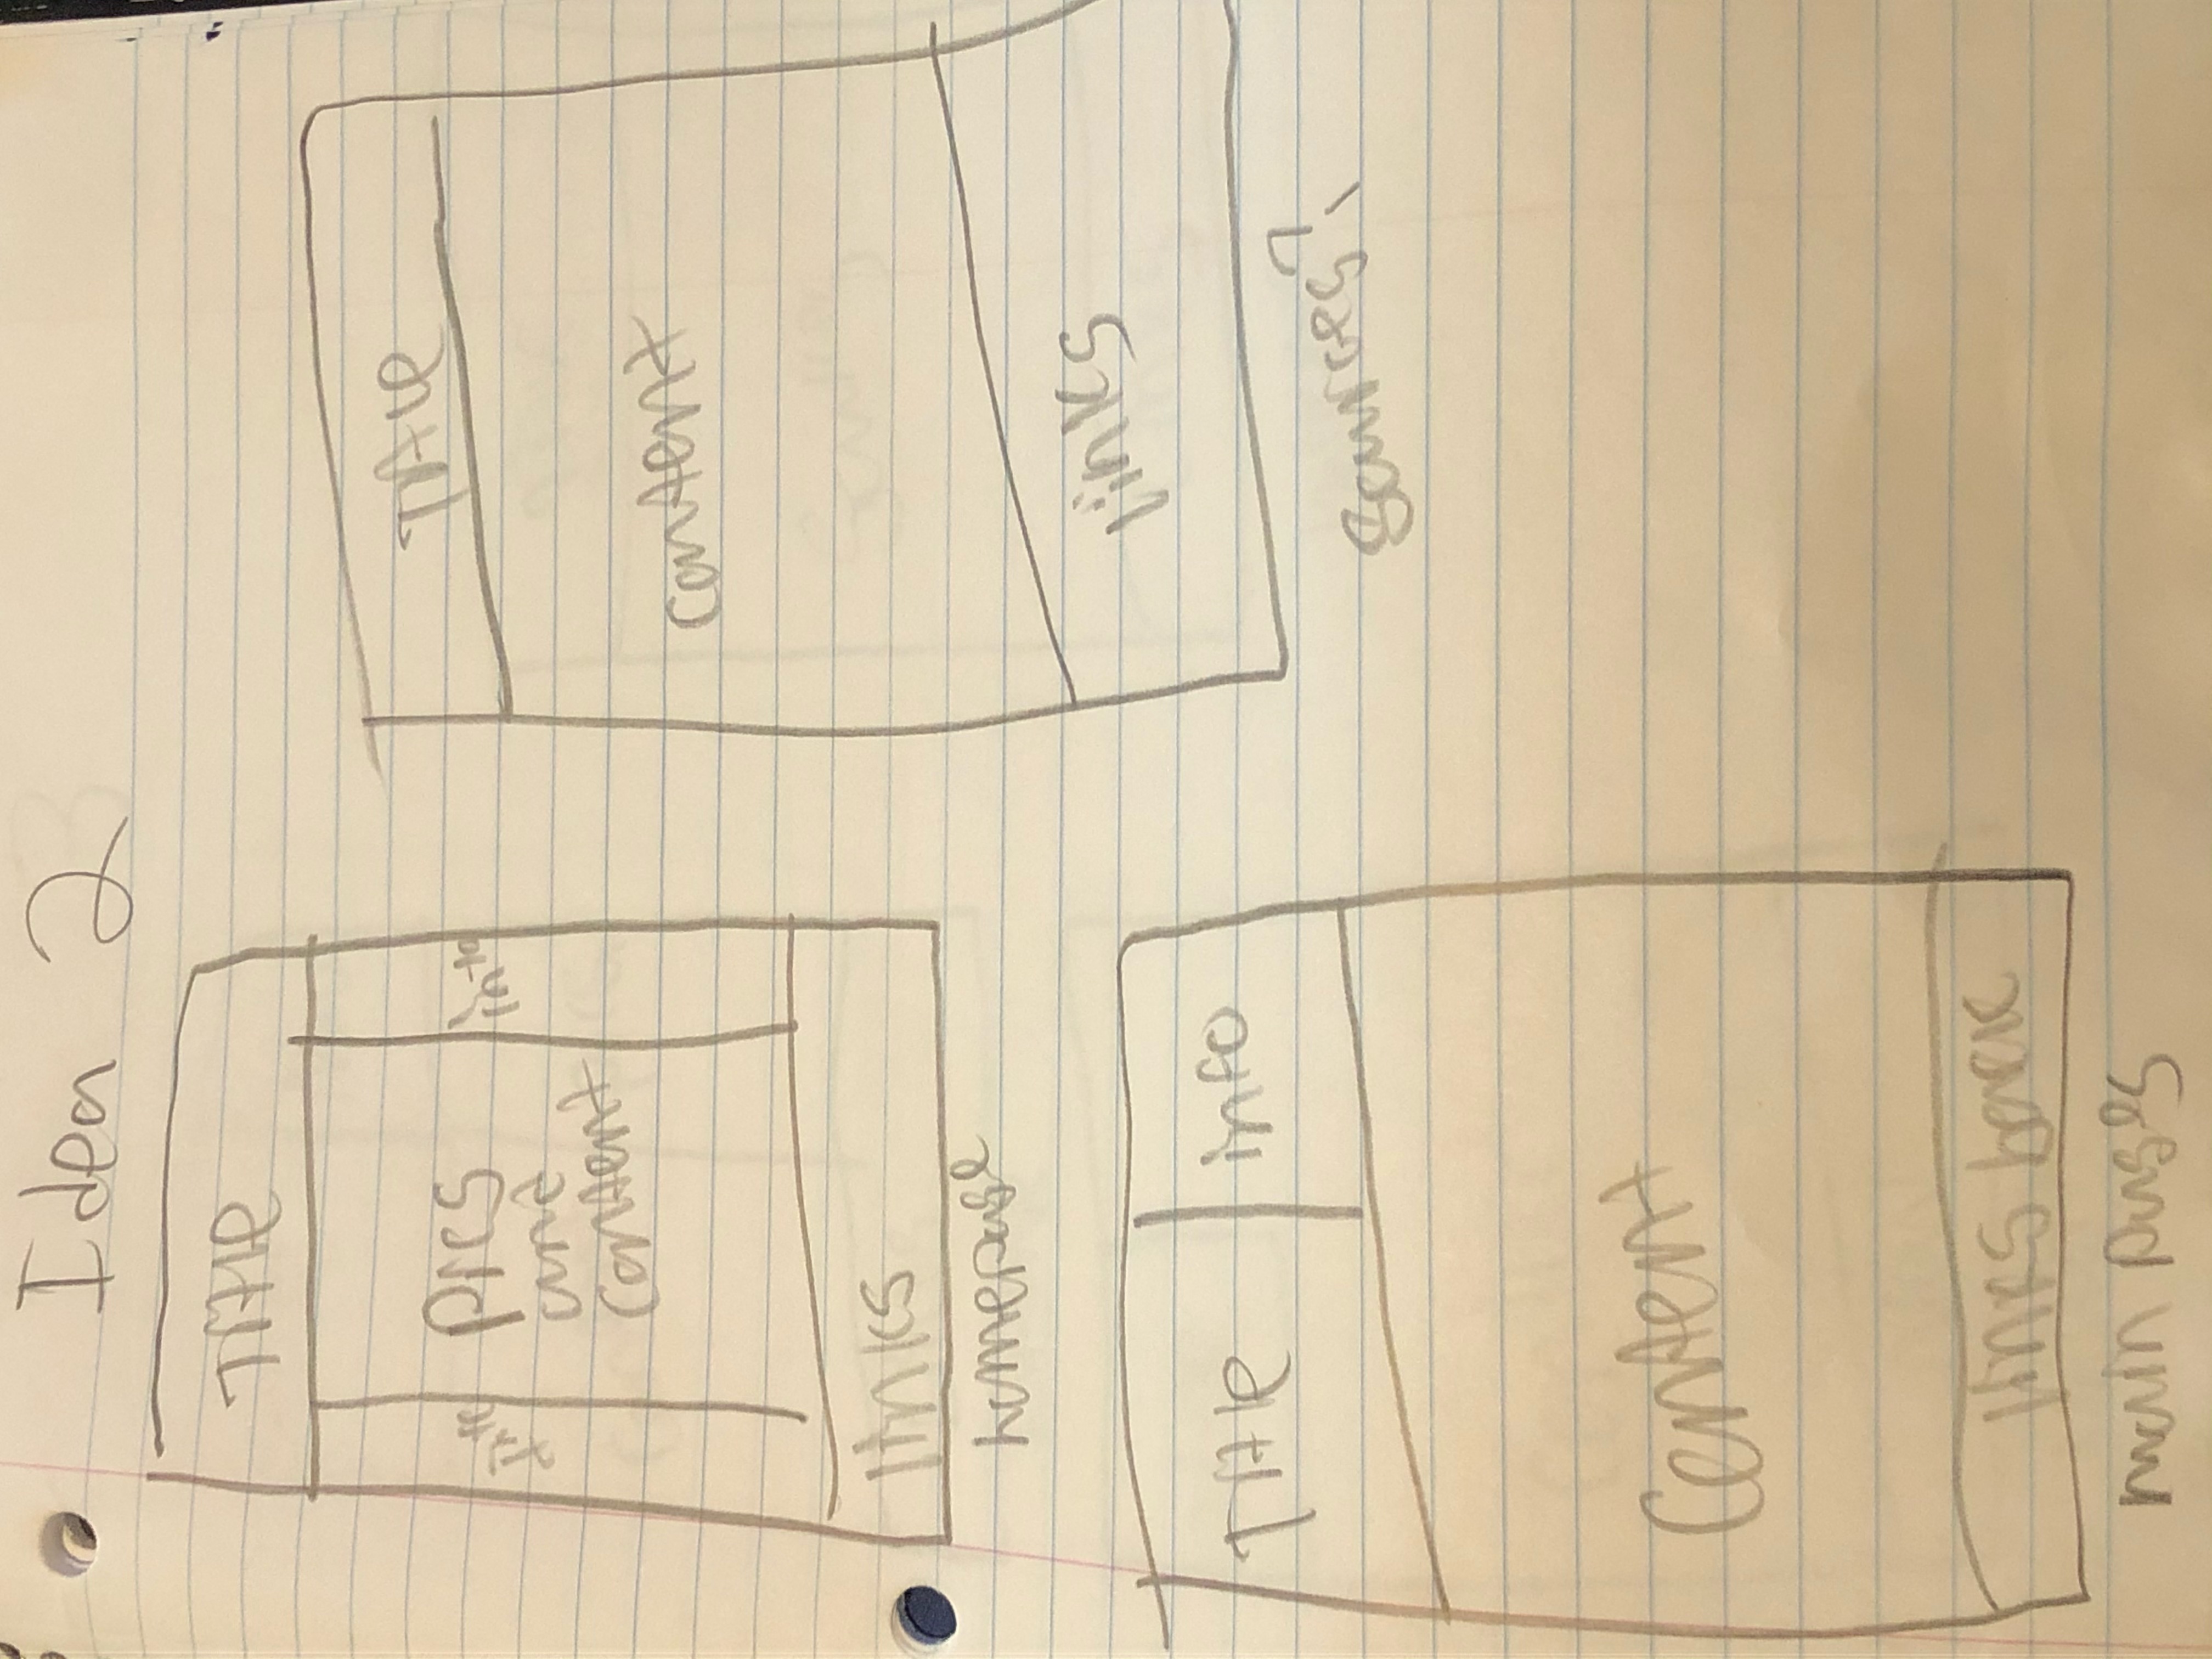 Idea 2
Title
info
Pics
and
content
info
links
homepage
Title
content
links
Sources?
Title
info
Content
links back
main pages